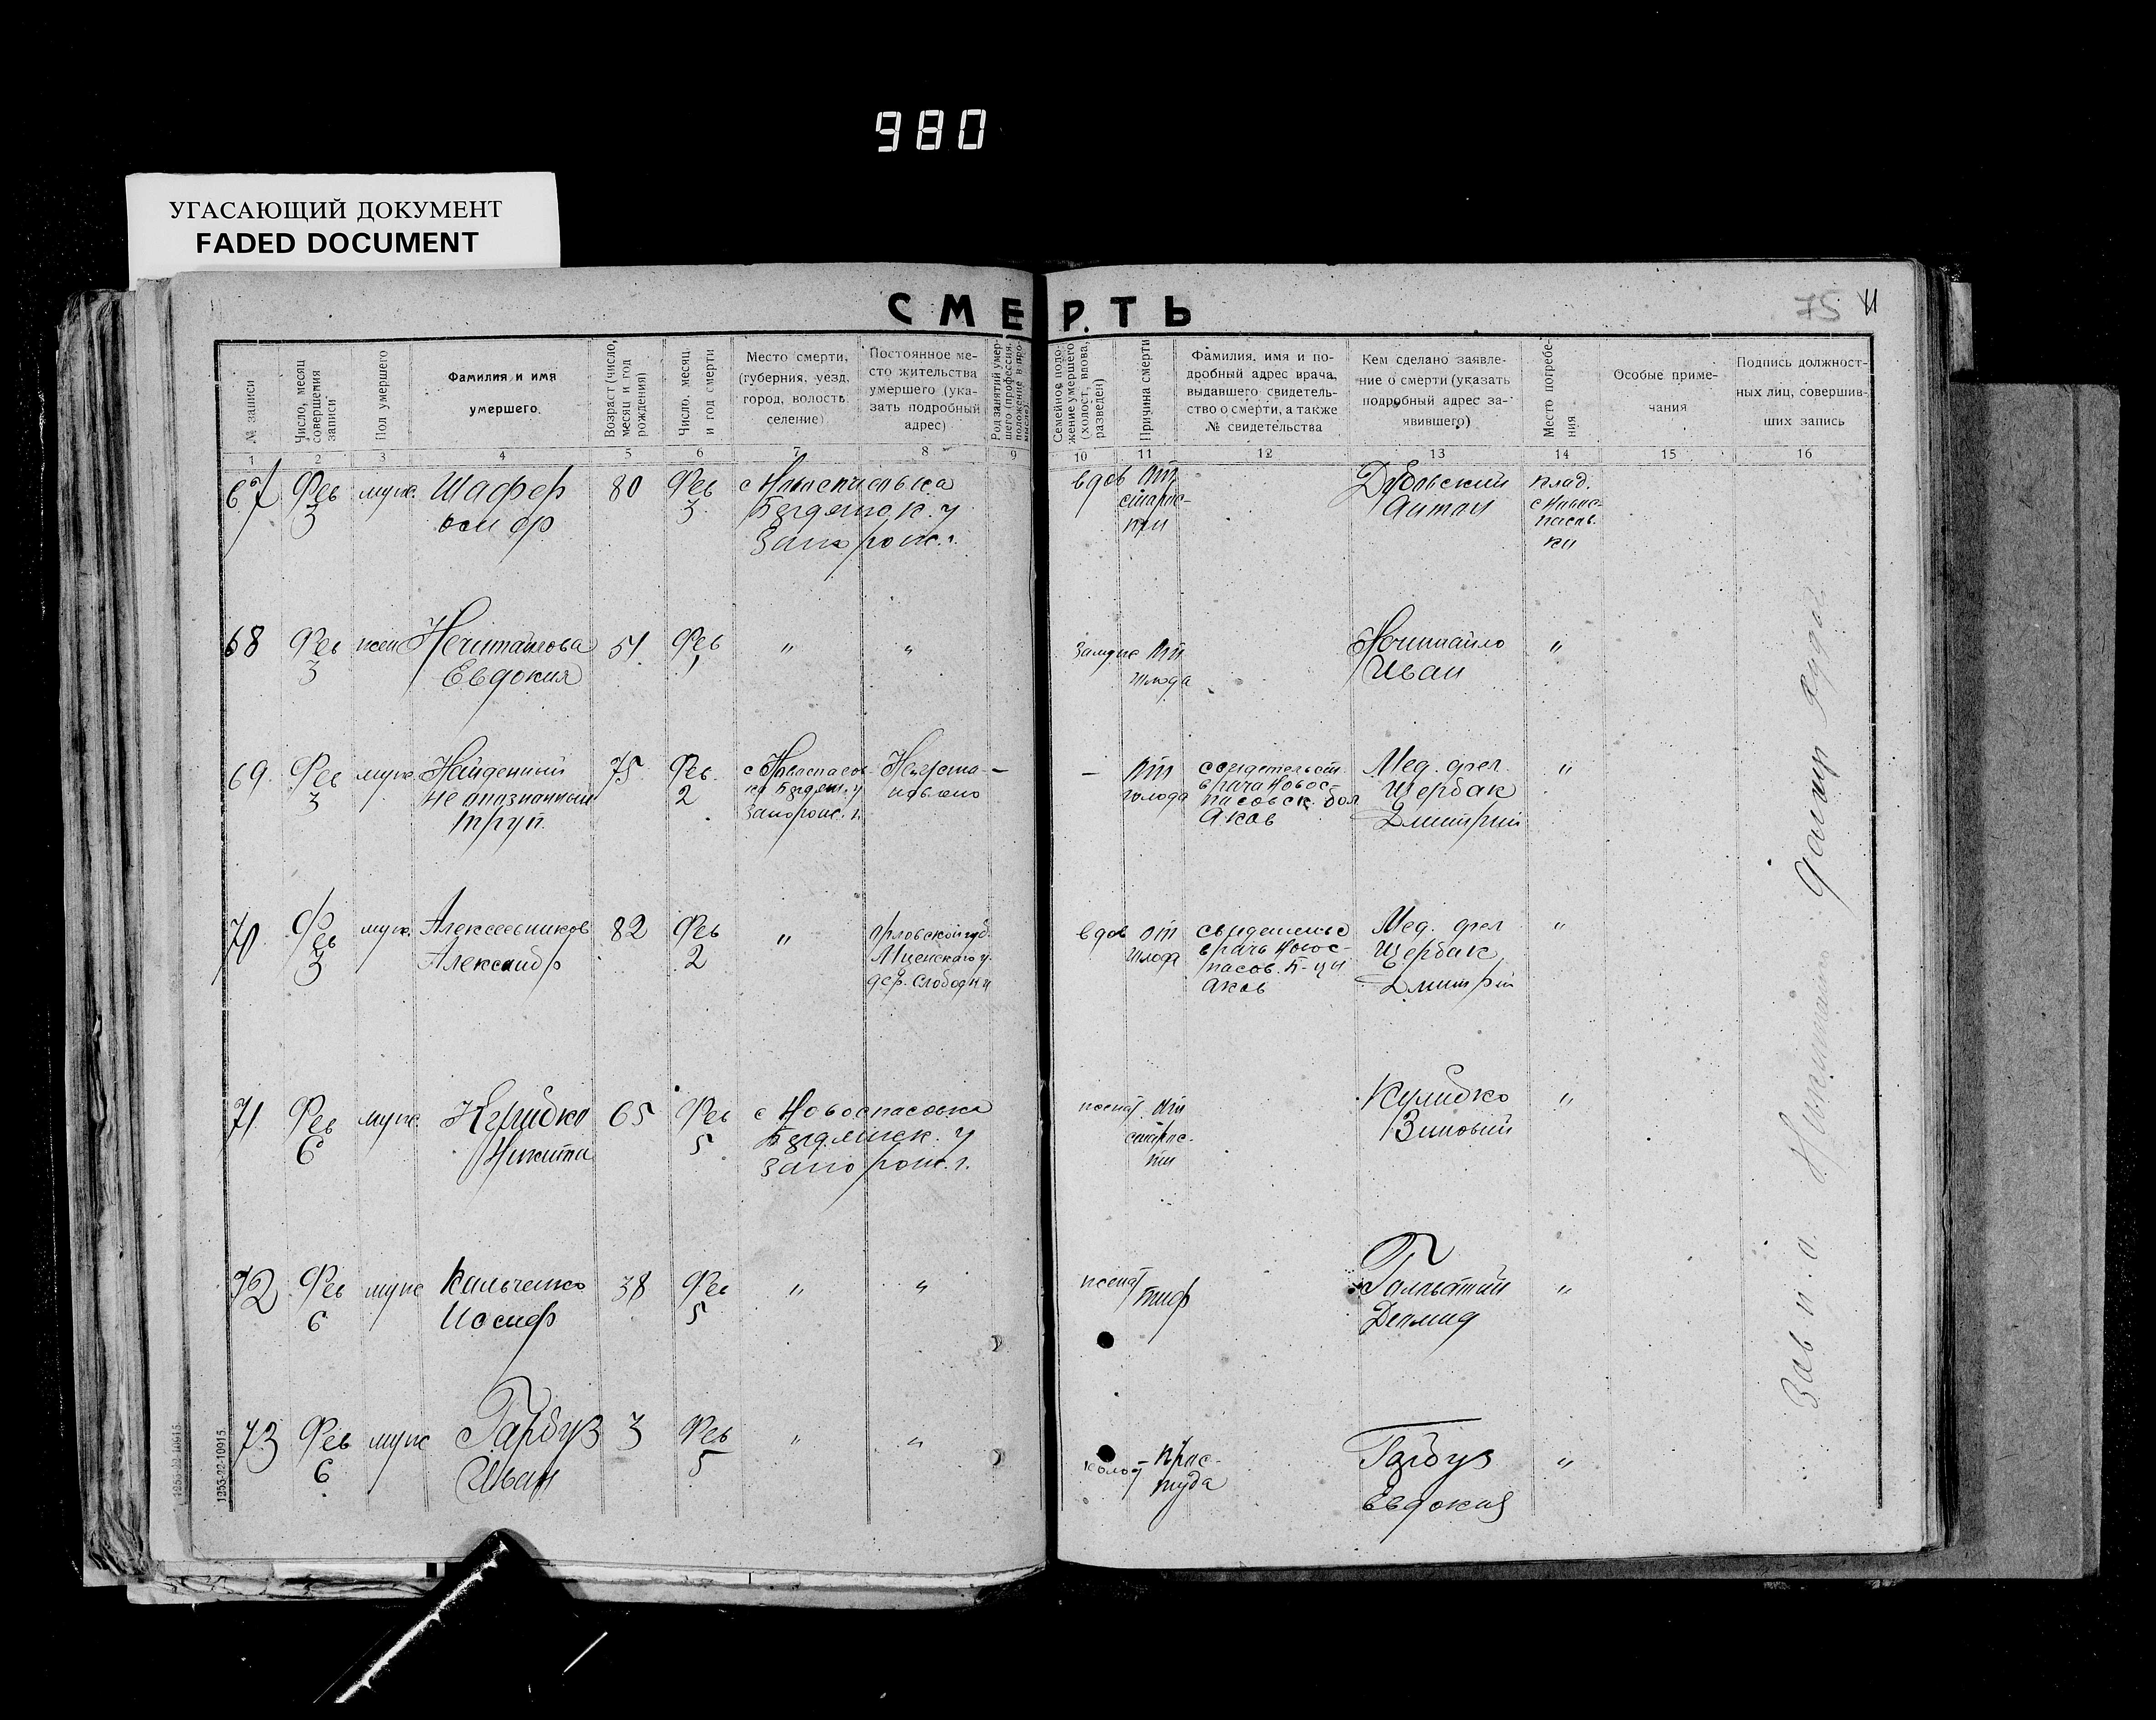 980
УГАСАЮЩИЙ ДОКУМЕНТ
FADED DOCUMENT
СМЕРТЬ
75
№ записи
Число, месяц
совершения
записи
Пол умершего
Фамилия и имя
умершего
Возраст (число,
месяц и год
рождения)
Число, месяц
и год смерти
Место смерти,
(губерния, уезд,
город, волость,
селение)
Постоянное ме-
сто жительства
умершего (ука-
зать подробный
адрес)
Род занятий умер-
шего (профессия,
положение в про-
мысле)
Семейное поло-
жение умершего
(холост, вдова,
разведен)
Причина смерти
Фамилия, имя и по-
дробный адрес врача,
выдавшего свидетель-
ство о смерти, а также
№ свидетельства
Кем сделано заявле-
ние о смерти (указать
подробный адрес за-
явившего)
Место погребе-
ния
Особые приме-
чания
Подпись должност-
ных лиц, совершив-
ших запись
1 2 3 4 5 6 7 8 9 10 11 12 13 14 15 16
67 Фев
3
муж.
Шафер
80 Фев
3
Запорож. г.
вдов от
старос-
ти
Антон
клад.
68 Фев
3
жен
Евдокия
Фев
"
"
замуж от
голода
Иван
"
69. Фев
3
муж.
Найденный
неопознанный
труп.
75 Фев.
2
с Новоспасов
ка Бердян. у
Запорож. г.
Неуста-
новлено
—
—
от
голода
свидетельст.
врача Новос-
пасовск. бол
Аков
Мед. фел.
Щербак
Дмитрий
"
70. Фев
3
муж.
Алексеевников
Александр
82 Фев
2
"
Орловской губ.
Мценского у.
дер. Слободки
вдов от
голода
врача Новос-
пасов. Б-цы
Аков
Мед. фел
Щербак
Дмитрий
"
71. Фев
6
муж.
Никита
65 Фев
5
с Новоспасовка
Бердянск. у
Запорож. г.
женат от
старос-
ти
Кулидко
Зиновий
"
72 Фев
6
муж
Кальченко
Иосиф
38 Фев
5
"
"
женат
тиф
"
73 Фев
6
муж
Гарбуз
Иван
3 Фев
5
"
"
холост
прос-
туда
Гарбуз
Евдокия
"
1253-22-10915.